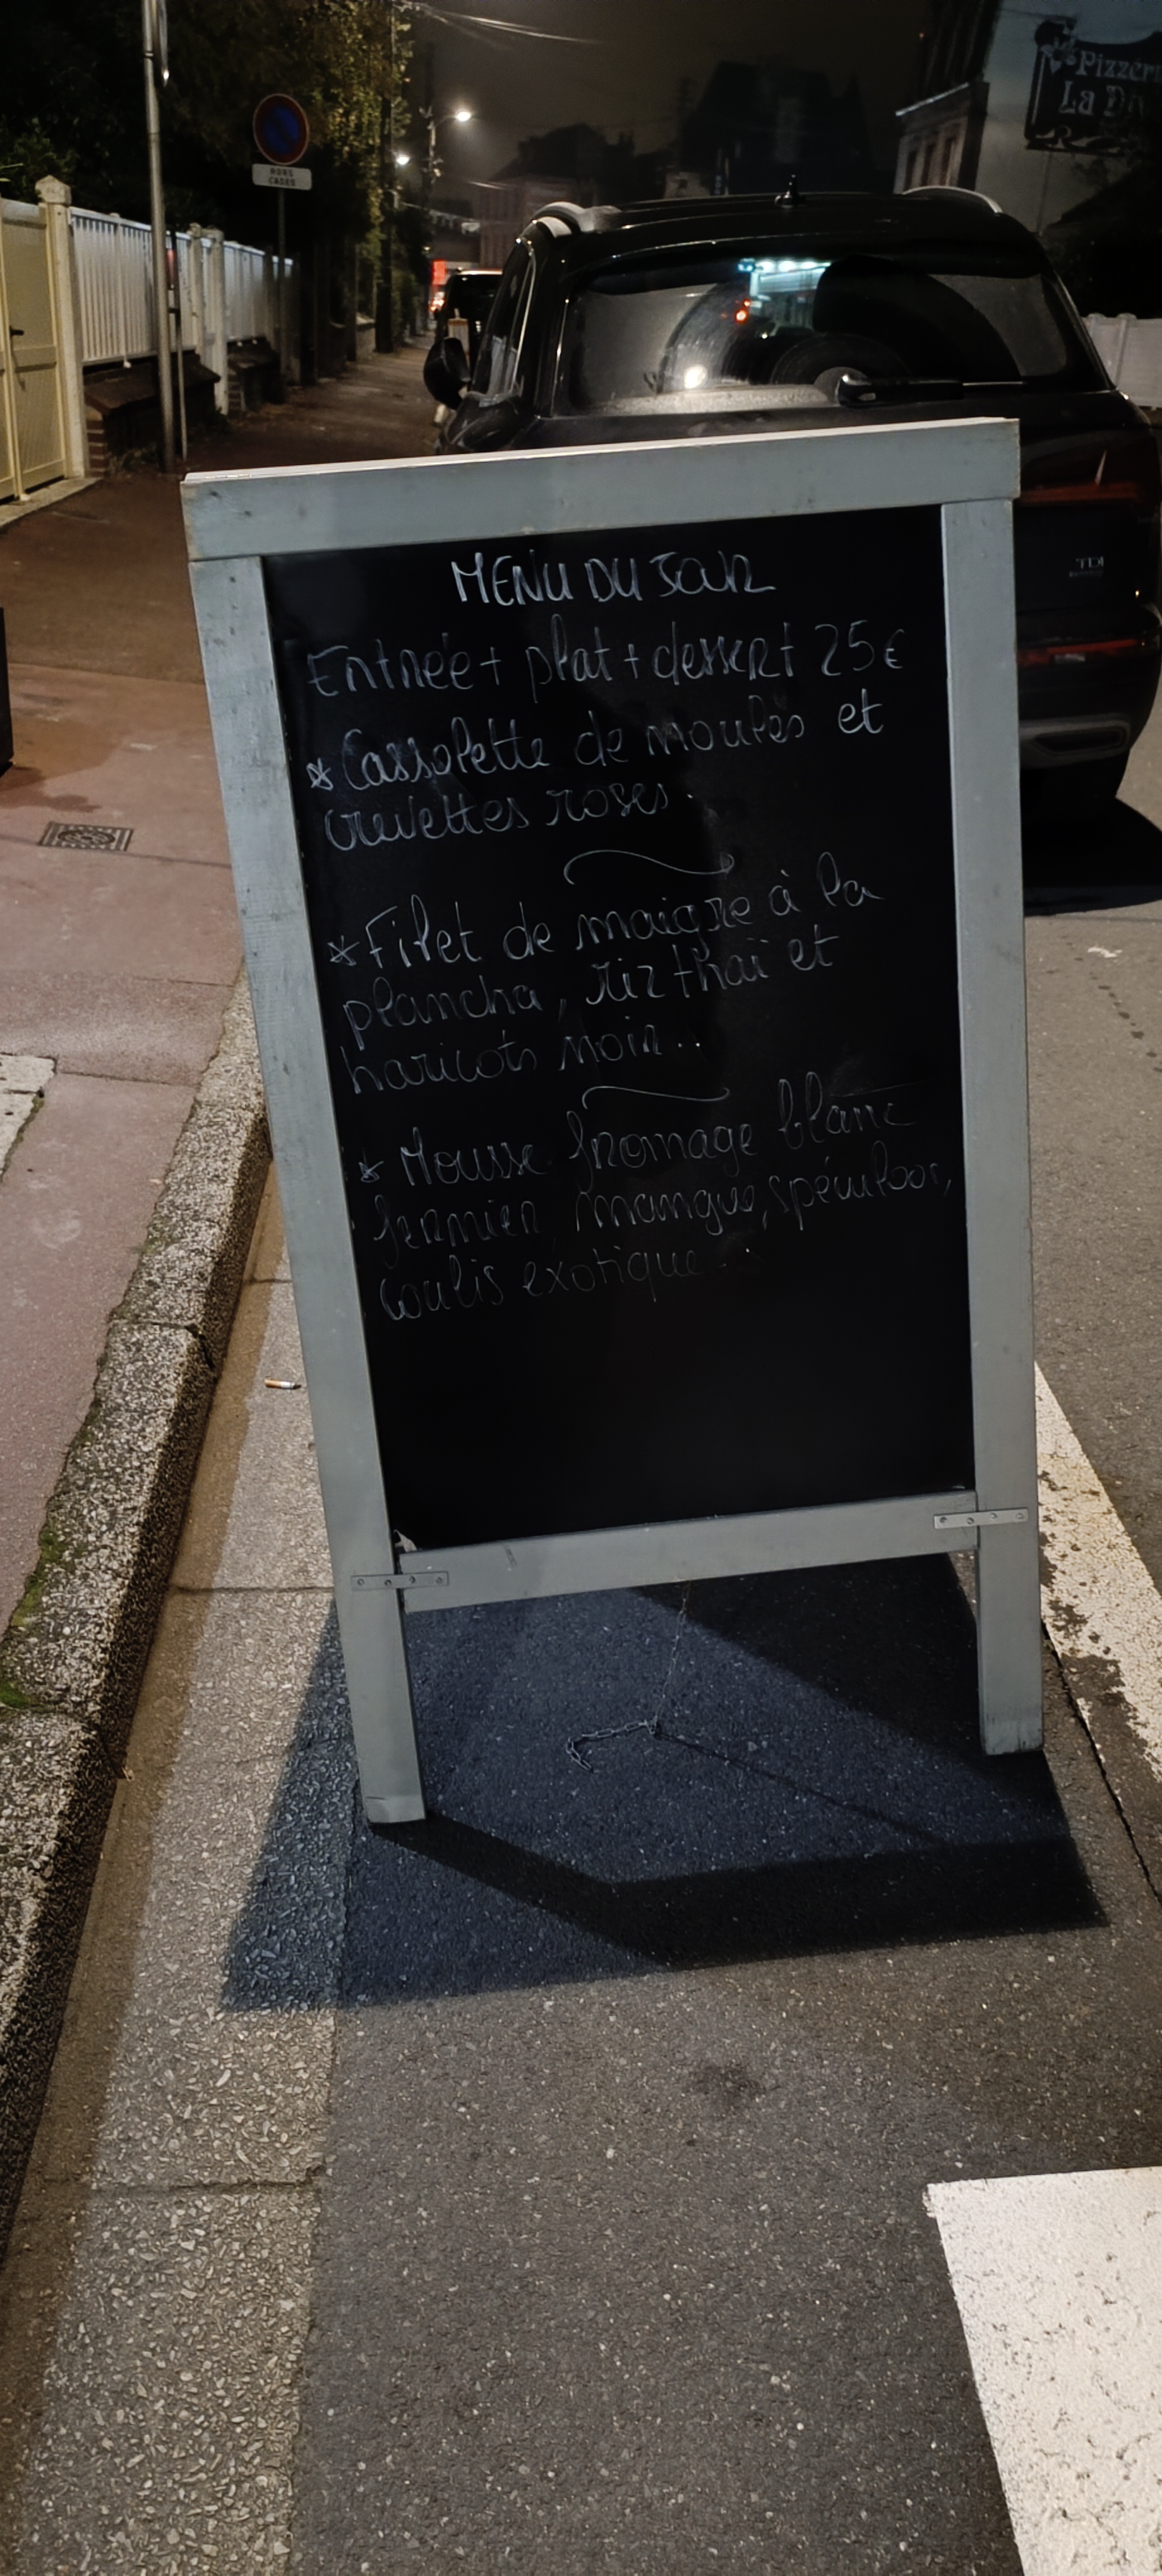 Pizzeri
La Di
HORS
CASES
TDI
MENU DU JOUR
Entrée + plat + dessert 25€
* Cassolette de moules et
crevettes roses.
* Filet de maigre à la
plancha, riz thaï et
haricots noir..
* Mousse fromage blanc
fermier, mangue, spéculoos,
coulis exotique.